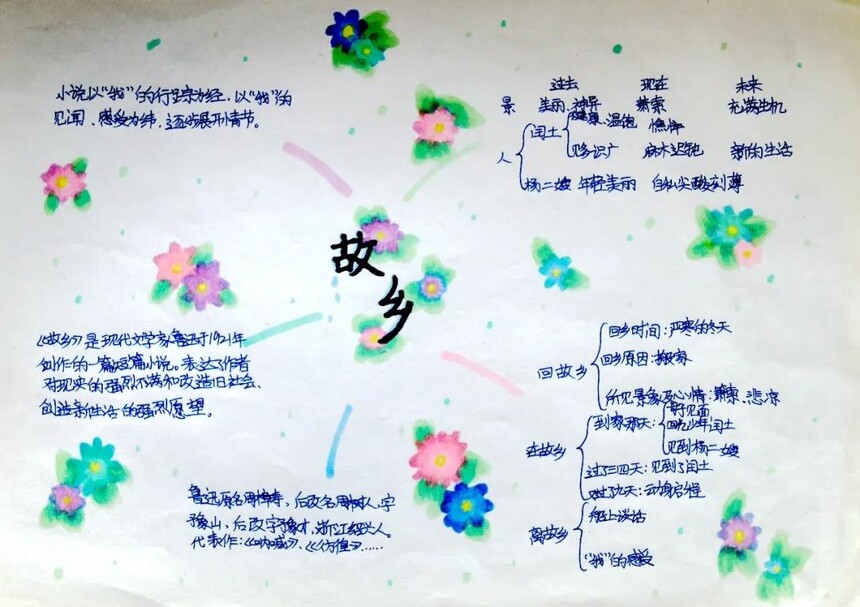 小说以“我”的行踪为经，以“我”的
见闻、感受为纬，逐步展开情节。
过去 现在 未来
景 美丽、神异 萧索 充满生机
人
闰土 健康、温饱 憔悴
见多识广 麻木迟钝 新的生活
杨二嫂 年轻美丽 自私尖酸刻薄
故乡
《故乡》是现代文学家鲁迅于1921年
创作的一篇短篇小说。表达了作者
对现实的强烈不满和改造旧社会、
创造新生活的强烈愿望。
鲁迅原名周樟寿，后改名周树人，字
豫山，后改字豫才，浙江绍兴人。
代表作：《呐喊》、《彷徨》……
回故乡
回乡时间：严寒的冬天
回乡原因：搬家
所见景象及心情：萧索、悲凉
在故乡
到家那天：
母子见面
回忆少年闰土
见到杨二嫂
过了三四天：见到了闰土
又过了九天：动身启程
离故乡
船上谈话
“我”的感受